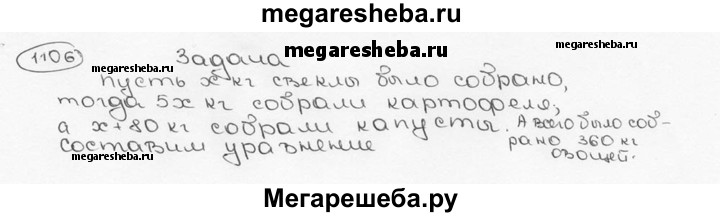 megaresheba.ru
1106 Задача
megaresheba.ru megaresheba.ru
пусть x кг свеклы было собрано,
тогда 5x кг собрали картофеля,
а x+80 кг собрали капусты. А всего было соб-
megaresheba.ru megaresheba.ru
составим уравнение рано 360 кг
овощей.
Мегарешеба.ру